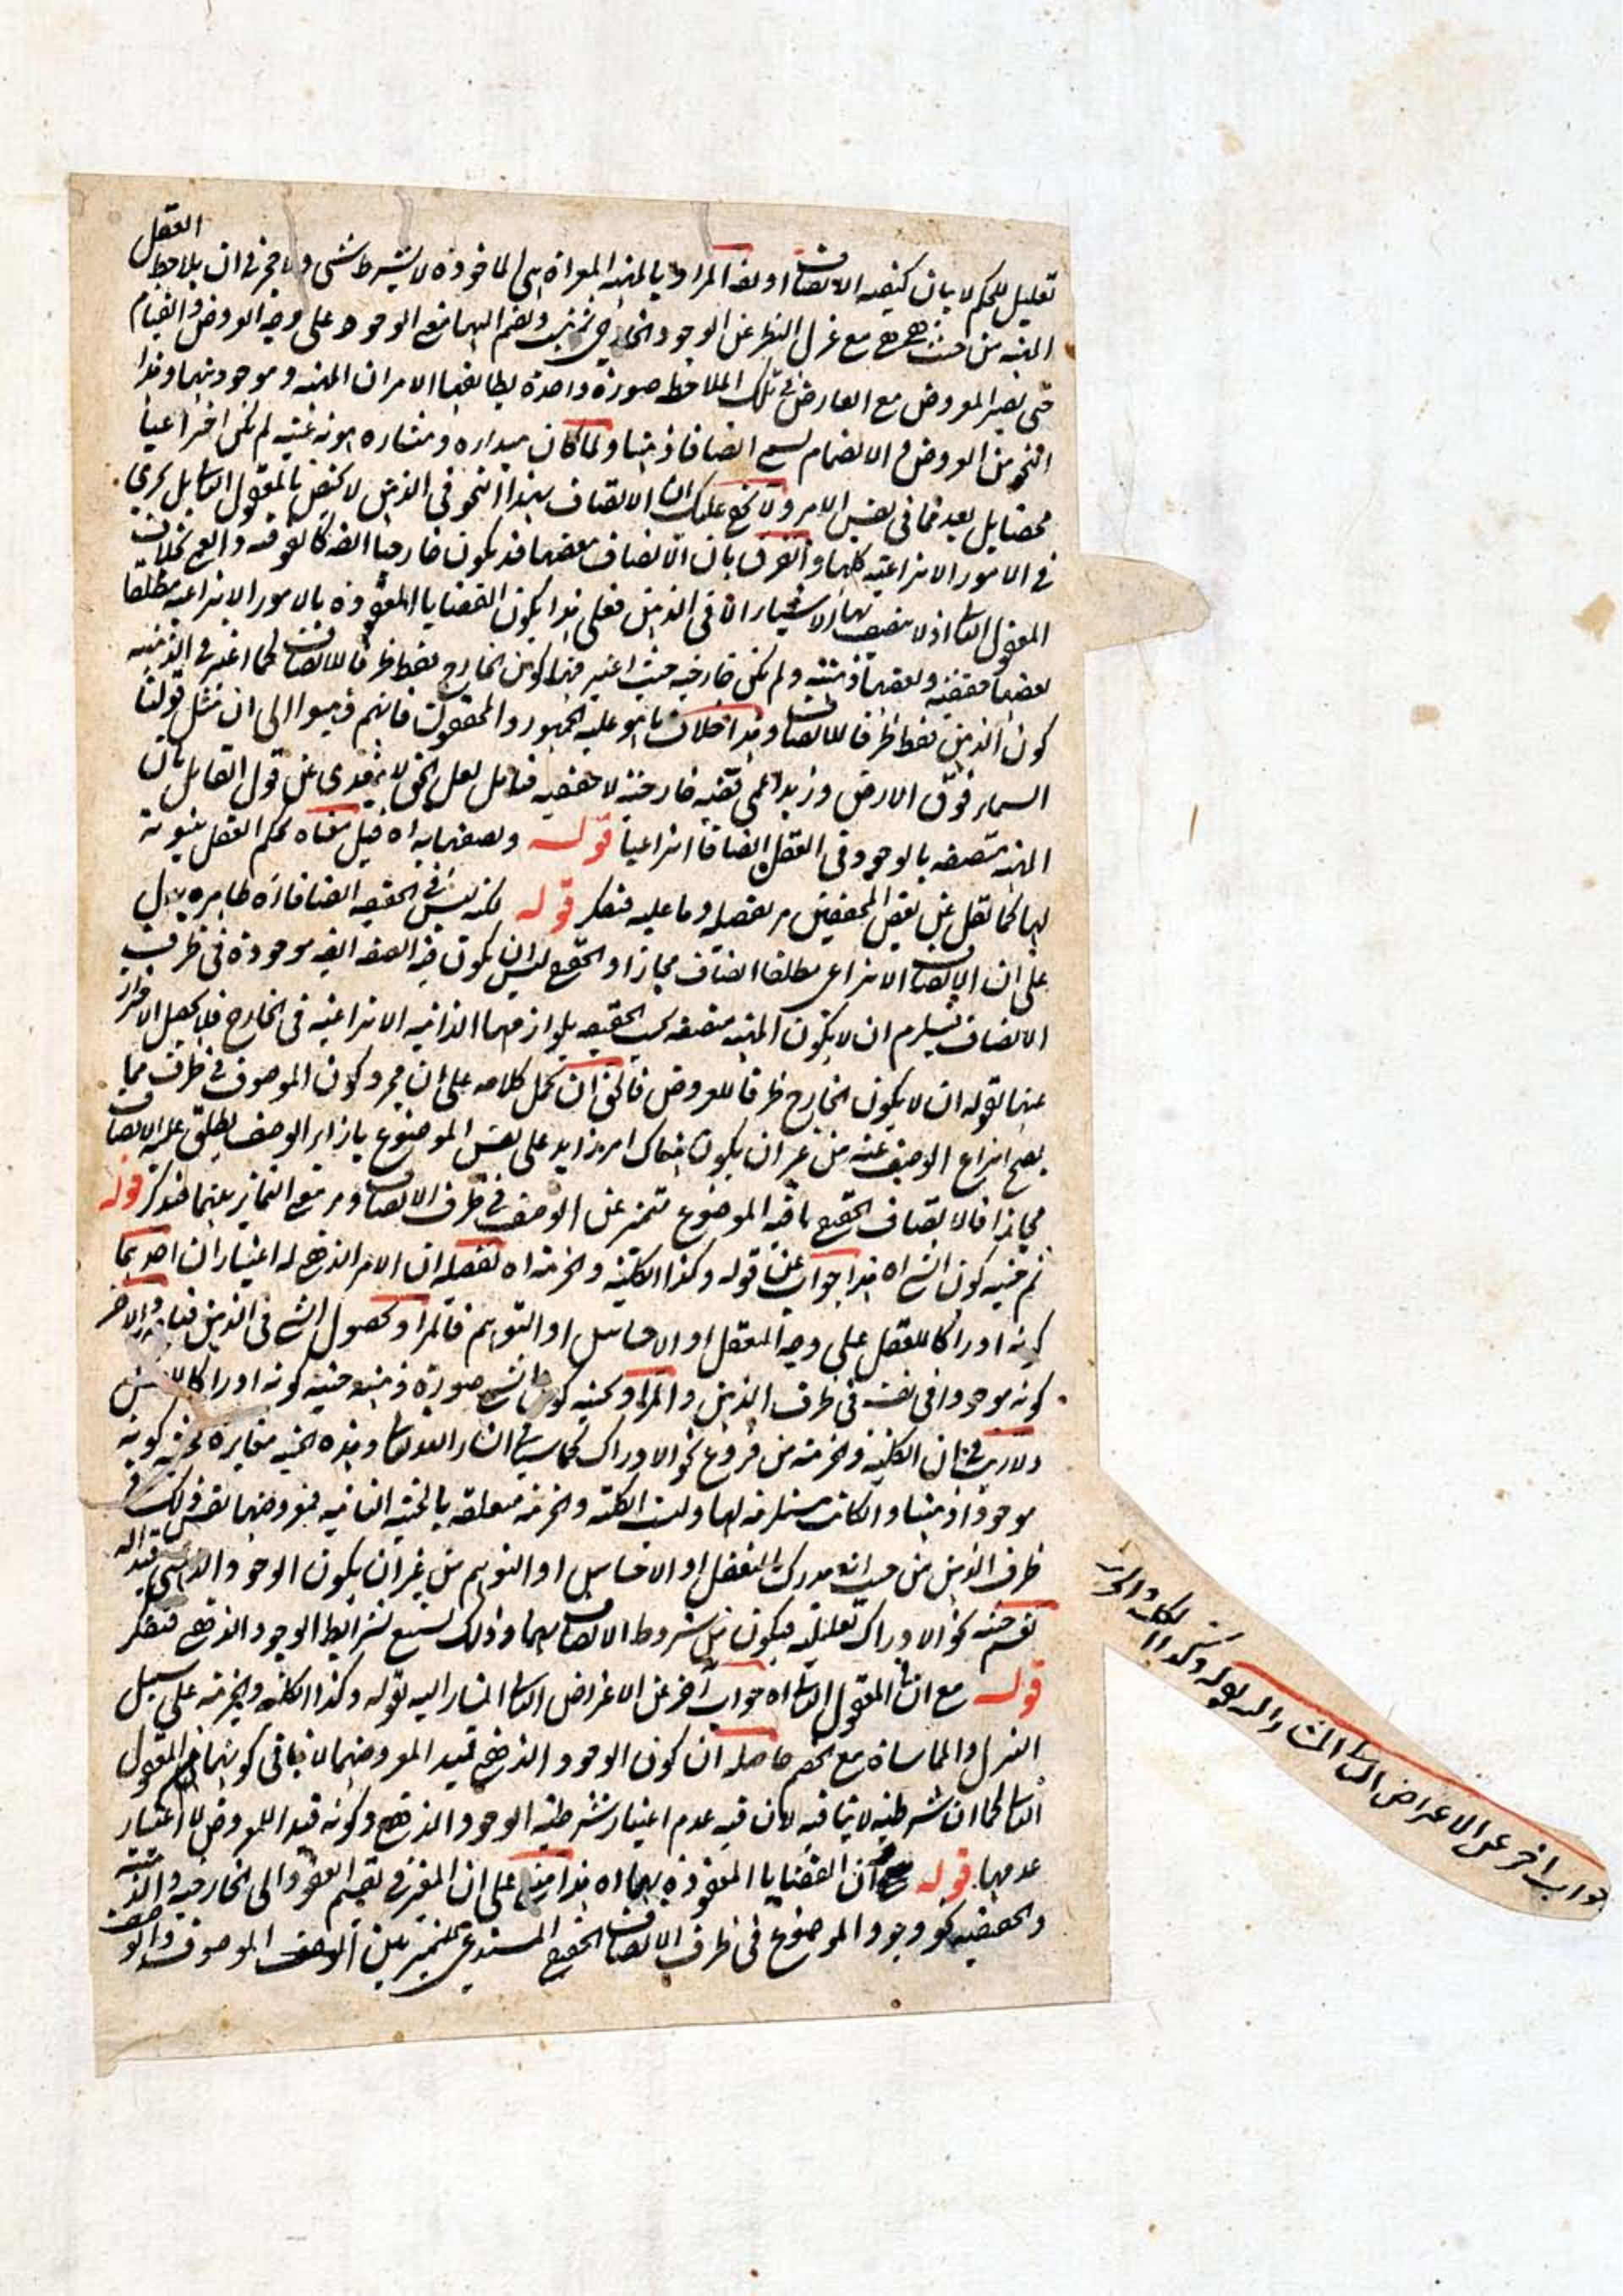 العقل
تعليل للحكم لا بيان كيفيه الاتصاف او نقه المراد بالمهيه المعراة هى الماخوذه لا بشرط شئ ولا حجر فى ان يلاحظ
المهيه من حيث هى هى مع عزل النظر عن الوجود الخارجى ثم ينسب ويضم اليها مع الوجود على وجه العروض والقيام
حتى يصير المعروض مع العارض فى تلك الملاحظه صورة واحدة يطابقها الامران المهيه وموجوديتها وهذا
النحو من العروض و الانضمام يسمى اتصافا ذهنيا ولما كان مبداره ومنشاره هويه عينيه لم يكن اختراعيا
محضا بل يعد مما فى نفس الامر ولا يخفى عليك ان الاتصاف بهذا النحو فى الذهن لا يختص بالمعقول الثانى بل يجرى
فى الامور الانتزاعيه كلها والفرق بان الاتصاف ببعضها قد يكون خارجيا ايضا كالفوقيه والعمى بخلاف
المعقول الثانى اذ لا يتصف بها الاشياء الا فى الذهن فعلى هذا يكون القضايا المعقوده بالامور الانتزاعيه مطلقا
بعضها حقيقيه وبعضها ذهنيه ولم يكن خارجيه حيث اعتبر فيها كون الخارج فقط ظرفا للاتصاف كما اعتبر فى الذهنيه
كون الذهن فقط ظرفا للاتصاف وهذا خلاف ما هو عليه الجمهور والمحققون فانهم ذهبوا الى ان مثل قولنا
السماء فوق الارض وزيد اعمى قضيه خارجيه لا حقيقيه فتامل لعل الحق لا يتعدى عن قول القايل بان
المهيه متصفه بالوجود فى العقل اتصافا انتزاعيا قوله ويصفها به اه قيل معناه يحكم العقل بثبوته
لها كما نقل عن بعض المحققين مر تفصيله وما عليه فتفكر قوله لكنه ليس فى الحقيقه اتصافا اه ظاهره يدل
على ان الاتصاف الانتزاعى مطلقا اتصاف مجازا والحقيقى ليس الا ان يكون فيه الصفه ايضه موجودة فى ظرف
الاتصاف فيلزم ان لا يكون المهيه متصفه بحسب الحقيقه بلوازمها الذاتيه الانتزاعيه فى الخارج فلا يحصل الاحتراز
عنها بقوله ان لا يكون الخارج ظرفا للعروض فالحق ان يحمل كلامه على ان مجرد كون الموصوف فى ظرف مما
يصح انتزاع الوصف عنه من غير ان يكون هناك امر زايد على نفس الموضوع بازاء الوصف يطلق عليه الاتصاف
مجازا فالاتصاف الحقيقى ما فيه الموضوع متميز عن الوصف فى ظرف الاتصاف ومر مع التمايز بينهما فتذكر قوله
ثم حيثيه كون الشئ اه هذا جواب عن قوله وكذا الكليه والجزئيه اه تفصيله ان الامر الذهنى له اعتباران احدهما
كونه ادراكا للعقل على وجه التعقل او الاحساس او التوهم فالمراد بحصول الشئ فى الذهن والاخر
كونه موجودا فى نفسه فى ظرف الذهن والمراد بحيثيه كون الشئ صورة ذهنيه حيثيه كونه ادراكا للذهن
ولا ريب فى ان الكليه والجزئيه من فروع نحو الادراك كما سياتى ان شاء الله تعالى وهذه الحيثيه مغايرة لحيثيه كونه
موجودا ذهنيا وان كانت مستلزمه لها وليست الكليه والجزئيه متعلقه بالحيثيه الثانيه فمعروضهما نفس ذلك فى
ظرف الذهن من حيث انه مدرك بالتعقل او الاحساس او التوهم من غير ان يكون الوجود الذهنى قيدا له
نعم حيثيه نحو الادراك تعليليه فيكون من شروط الاتصاف بهما وذلك يستتبع شرايط الوجود الذهنى فتفكر
قوله مع ان المعقول الثانى اه جواب آخر عن الاعتراض الثانى المشار اليه بقوله وكذا الكليه والجزئيه على سبيل
التنزل والمماشاة مع الخصم حاصله ان كون الوجود الذهنى قيد المعروضهما لا ينافى كونهما من المعقول
الثانى كما ان شرطيته لا ينافيه لان فيه عدم اعتبار شرطيه الوجود الذهنى وكونه قيدا للمعروض لا اعتبار
عدمها قوله ان القضايا المعقوده بهما اه هذا مبنى على ان المعتبر فى تقسيم العقود الى الخارجيه والذهنيه
والحقيقيه نحو وجود الموضوع فى ظرف الاتصاف الحقيقى المستدعى للتميز بين الموصوف والوصف
جواب اخر عن الاعتراض الثانى المشار اليه بقوله وكذا الكليه والجزئيه